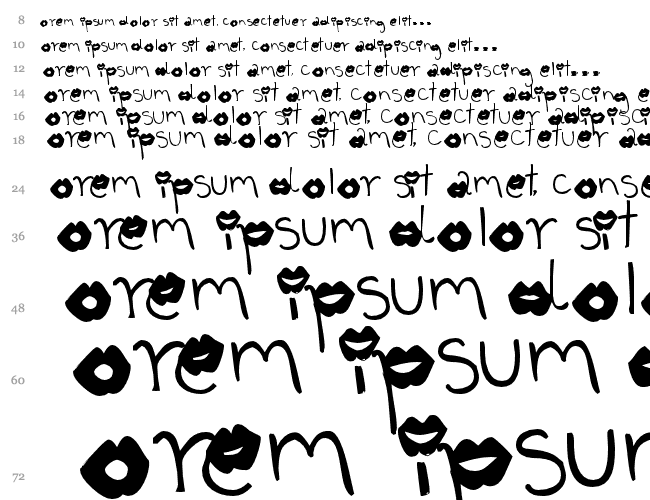 8 orem ipsum dolor sit amet, consectetuer adipiscing elit...
10 orem ipsum dolor sit amet, consectetuer adipiscing elit...
12 orem ipsum dolor sit amet, consectetuer adipiscing elit...
14 orem ipsum dolor sit amet, consectetuer adipiscing e
16 orem ipsum dolor sit amet, consectetuer adipisci
18 orem ipsum dolor sit amet, consectetuer a
24 orem ipsum dolor sit amet, conse
36 orem ipsum dolor sit
48 orem ipsum dolo
60 orem ipsum
72 orem ipsum